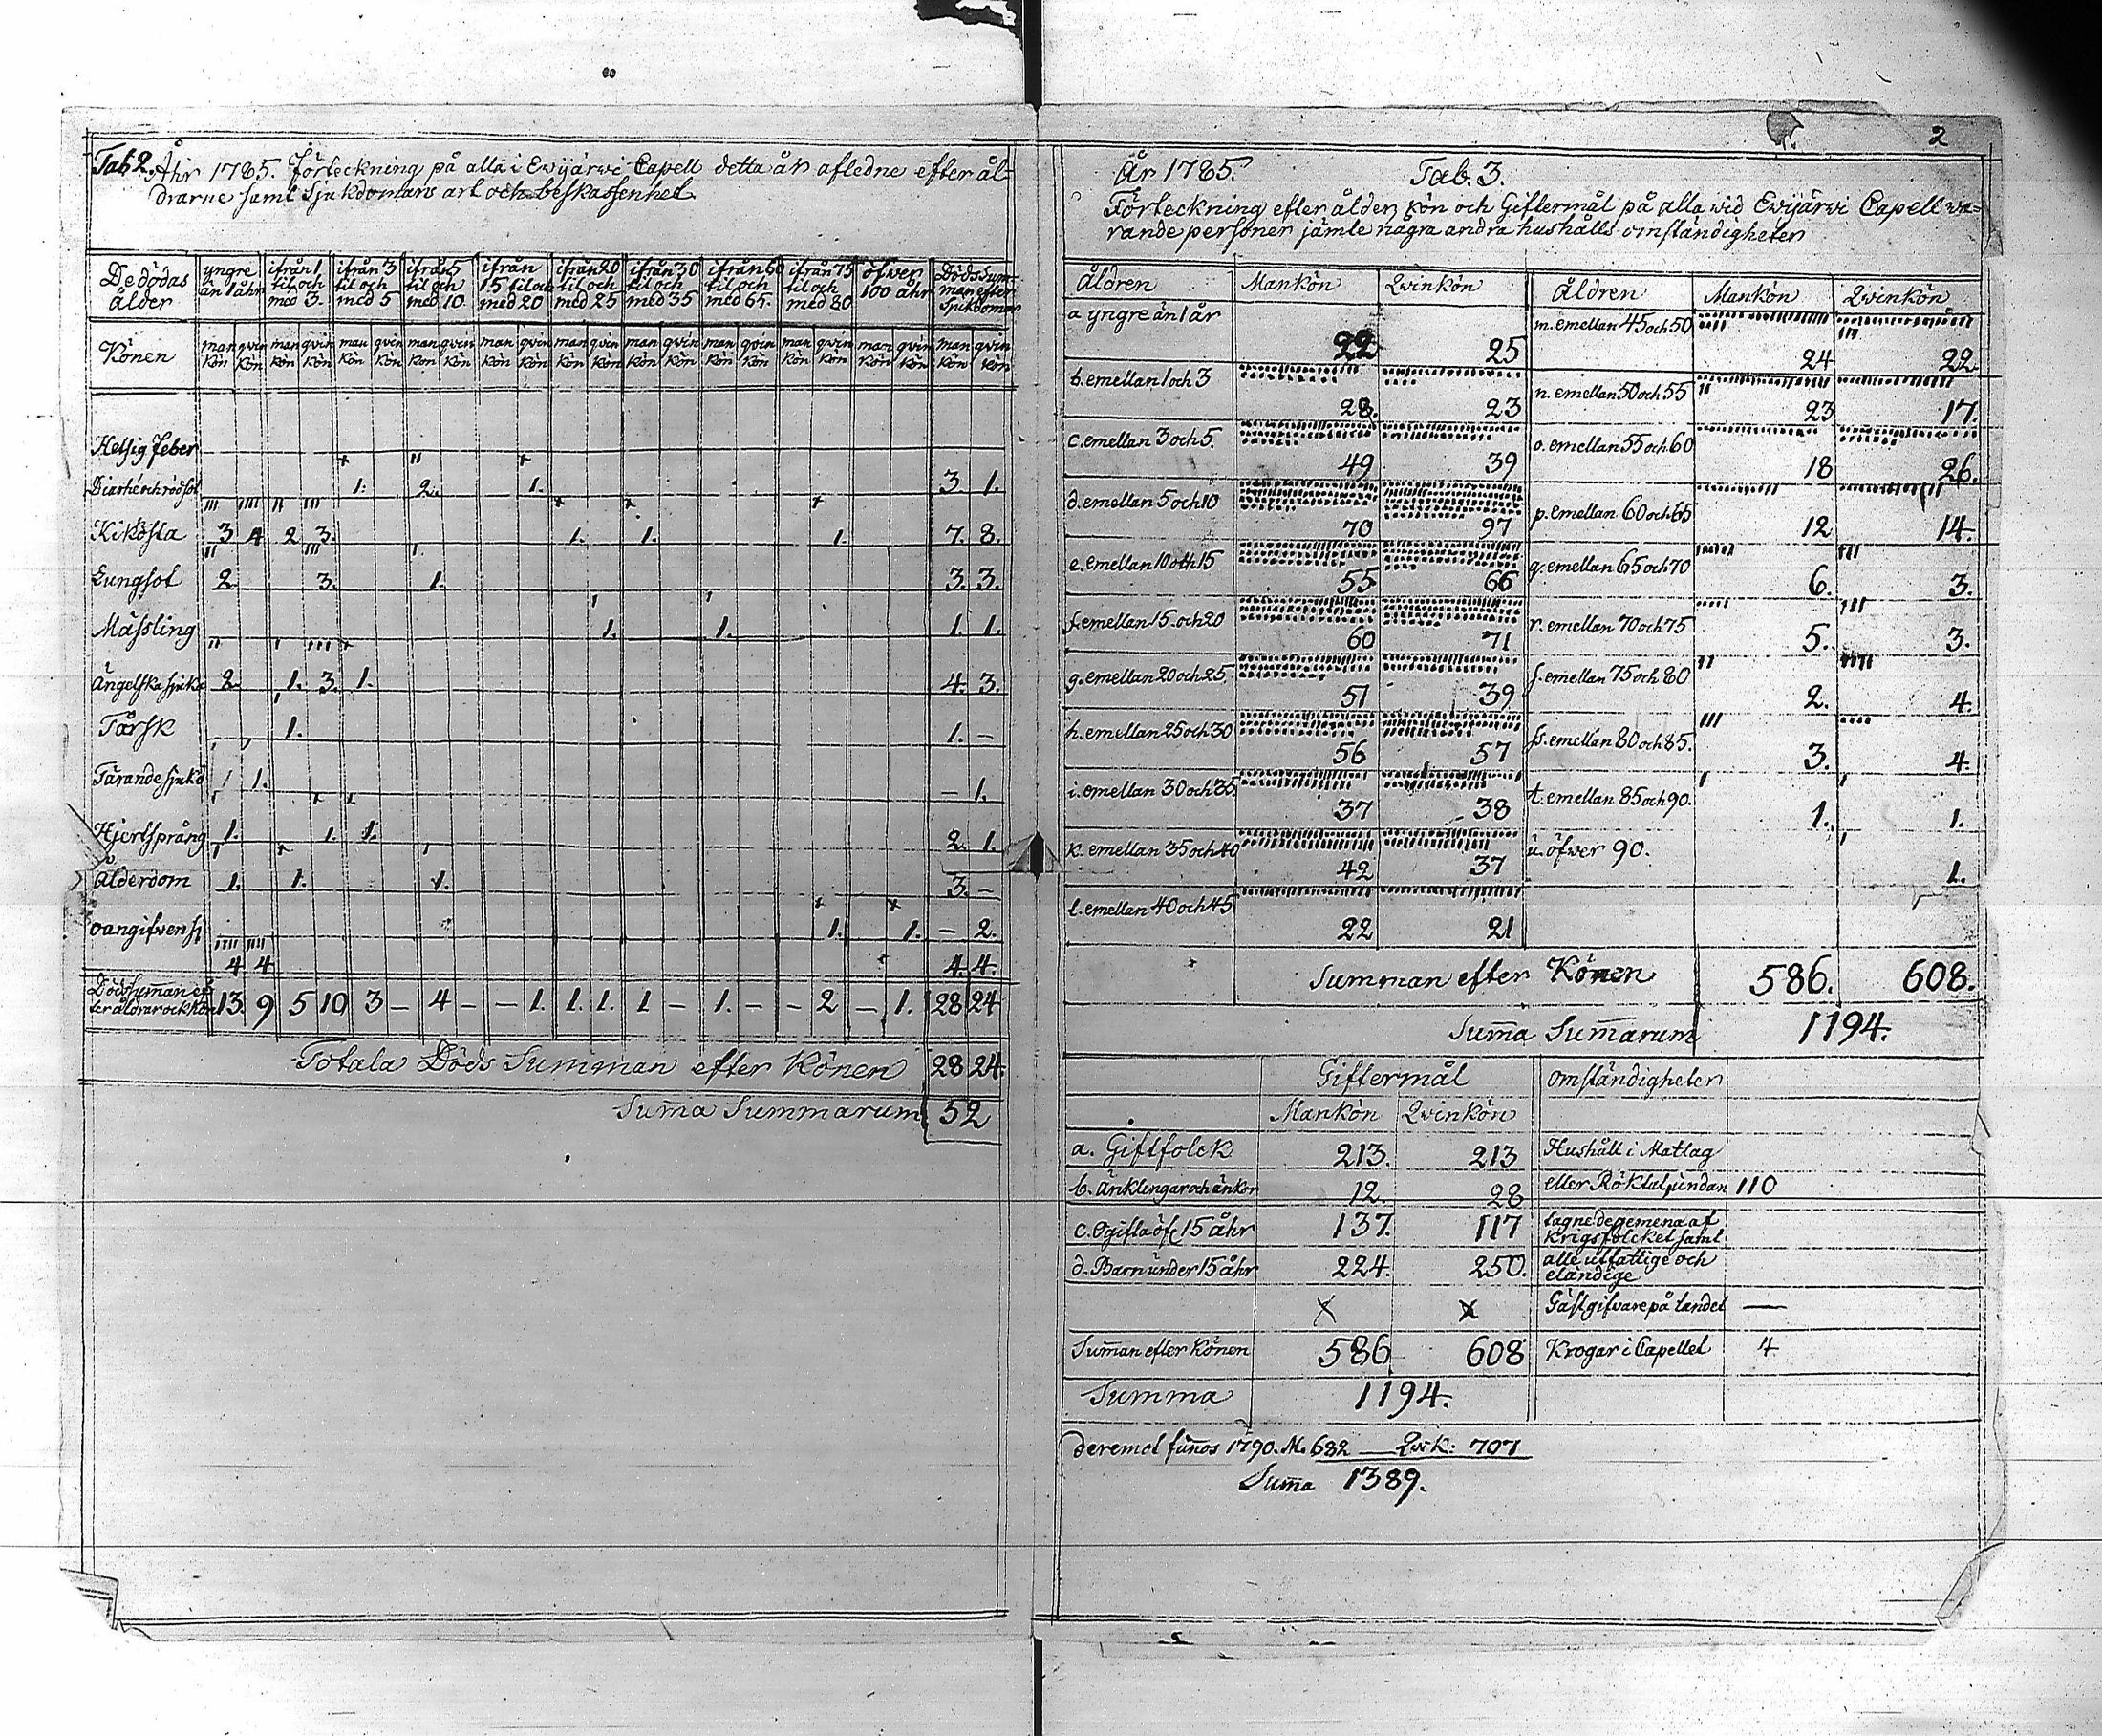 Tab 2. Åhr 1785. Förteckning på alla i Ewijärwi Capell detta år afledne efter ål-
drarne samt Sjukdomars art och beskaffenhet
De dödas ålder | yngre än 1 åhr | ifrån 1 til och med 3. | ifrån 3 til och med 5 | ifrån 5 til och med 10. | ifrån 15 til och med 20 | ifrån 20 til och med 25 | ifrån 30 til och med 35 | ifrån 60 til och med 65. | ifrån 75 til och med 80 | öfwer 100 åhr | Döds Summan efter Sjukdomar
Könen | man kön | qvin kön | man kön | qvin kön | man kön | qvin kön | man kön | qvin kön | man kön | qvin kön | man kön | qvin kön | man kön | qvin kön | man kön | qvin kön | man kön | qvin kön | man kön | qvin kön | man kön | qvin kön
Hetsig feber
Diarhé och rödsot 1. 2. 1. 3. 1.
Kikösta 3 4 2 3. 1. 1. 1. 7. 8.
Lungsot 2 3. 1. 3. 3.
Mässling 1. 1. 1. 1.
Ängelska sjuka 2 1. 3. 1. 4. 3.
Tårsk 1. 1. –
Tärande sjukd 1. – 1.
Hjertsprång 1. 1. 1. 2. 1.
Ålderdom 1. 1. 1. 3. –
oangifven sj 1. 1. – 2.
4 4 4. 4.
Dödssuman efter åldrar ock kön 13. 9 5 10 3 – 4 – – 1. 1. 1. 1 – 1. – – 2 – 1. 28 24
Totala Döds Summan efter Könen 28 24.
Suma Summarum 52
2
År 1785. Tab. 3.
Förteckning efter ålder, kön och Giftermål på alla wid Ewijärwi Capell wa=
rande personer jämte några andra hushålls omständigheter
Åldren | Mankön | Qwinkön | Åldren | Mankön | Qwinkön
a yngre än 1 år 22 25 m. emellan 45 och 50 24 22
b. emellan 1 och 3 28. 23 n. emellan 50 och 55 23 17.
c. emellan 3 och 5. 49 39 o. emellan 55 och 60 18 26.
d. emellan 5 och 10 70 97 p. emellan 60 och 65 12 14.
e. emellan 10 och 15 55 66 q. emellan 65 och 70 6. 3.
f. emellan 15 och 20 60 71 r. emellan 70 och 75 5. 3.
g. emellan 20 och 25. 51 39 s. emellan 75 och 80 2. 4.
h. emellan 25 och 30 56 57 ss. emellan 80 och 85. 3. 4.
i. emellan 30 och 35. 37 38 t. emellan 85 och 90. 1. 1.
k. emellan 35 och 40 42 37 u. öfwer 90. 1.
l. emellan 40 och 45 22 21
Summan efter Könen 586. 608.
Suma Sumarum 1194.
Giftermål | omständigheter
Mankön | Qwinkön
a. Giftfolck 213. 213 Hushåll i Matlag
b. Änklingar och änkor 12. 28 eller Röktal, undan 110
c. Ogifta öf 15 åhr 137. 117 tagne de gemena af
krigsfolcket samt
d. Barn under 15 åhr 224. 250. alle utfattige och
eländige
X X Gästgifvare på landet —
Suman efter Könen 586 608 Krogar i Capellet 4
Summa 1194.
deremot funos 1790. M. 682 — Qwk: 707
Suma 1389.